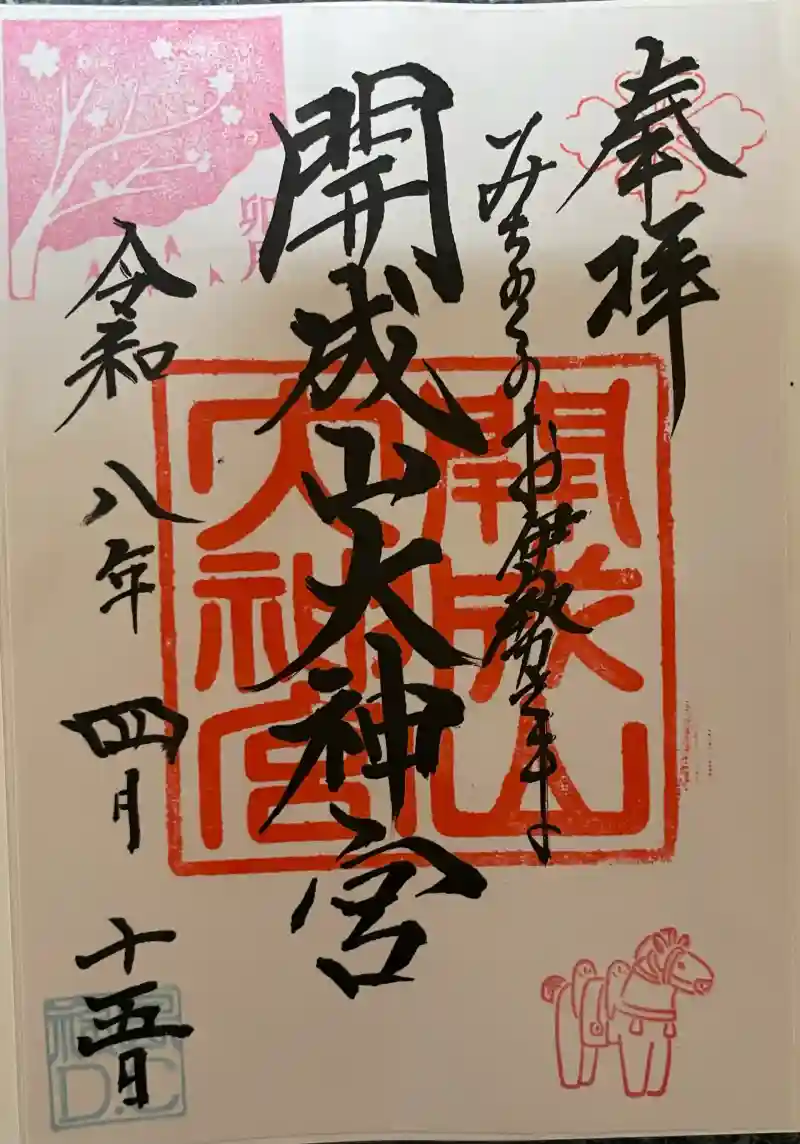 奉拝
みちのくのお伊勢
開成山大神宮
開成山
大神宮
卯月
令和八年四月十五日
D.C